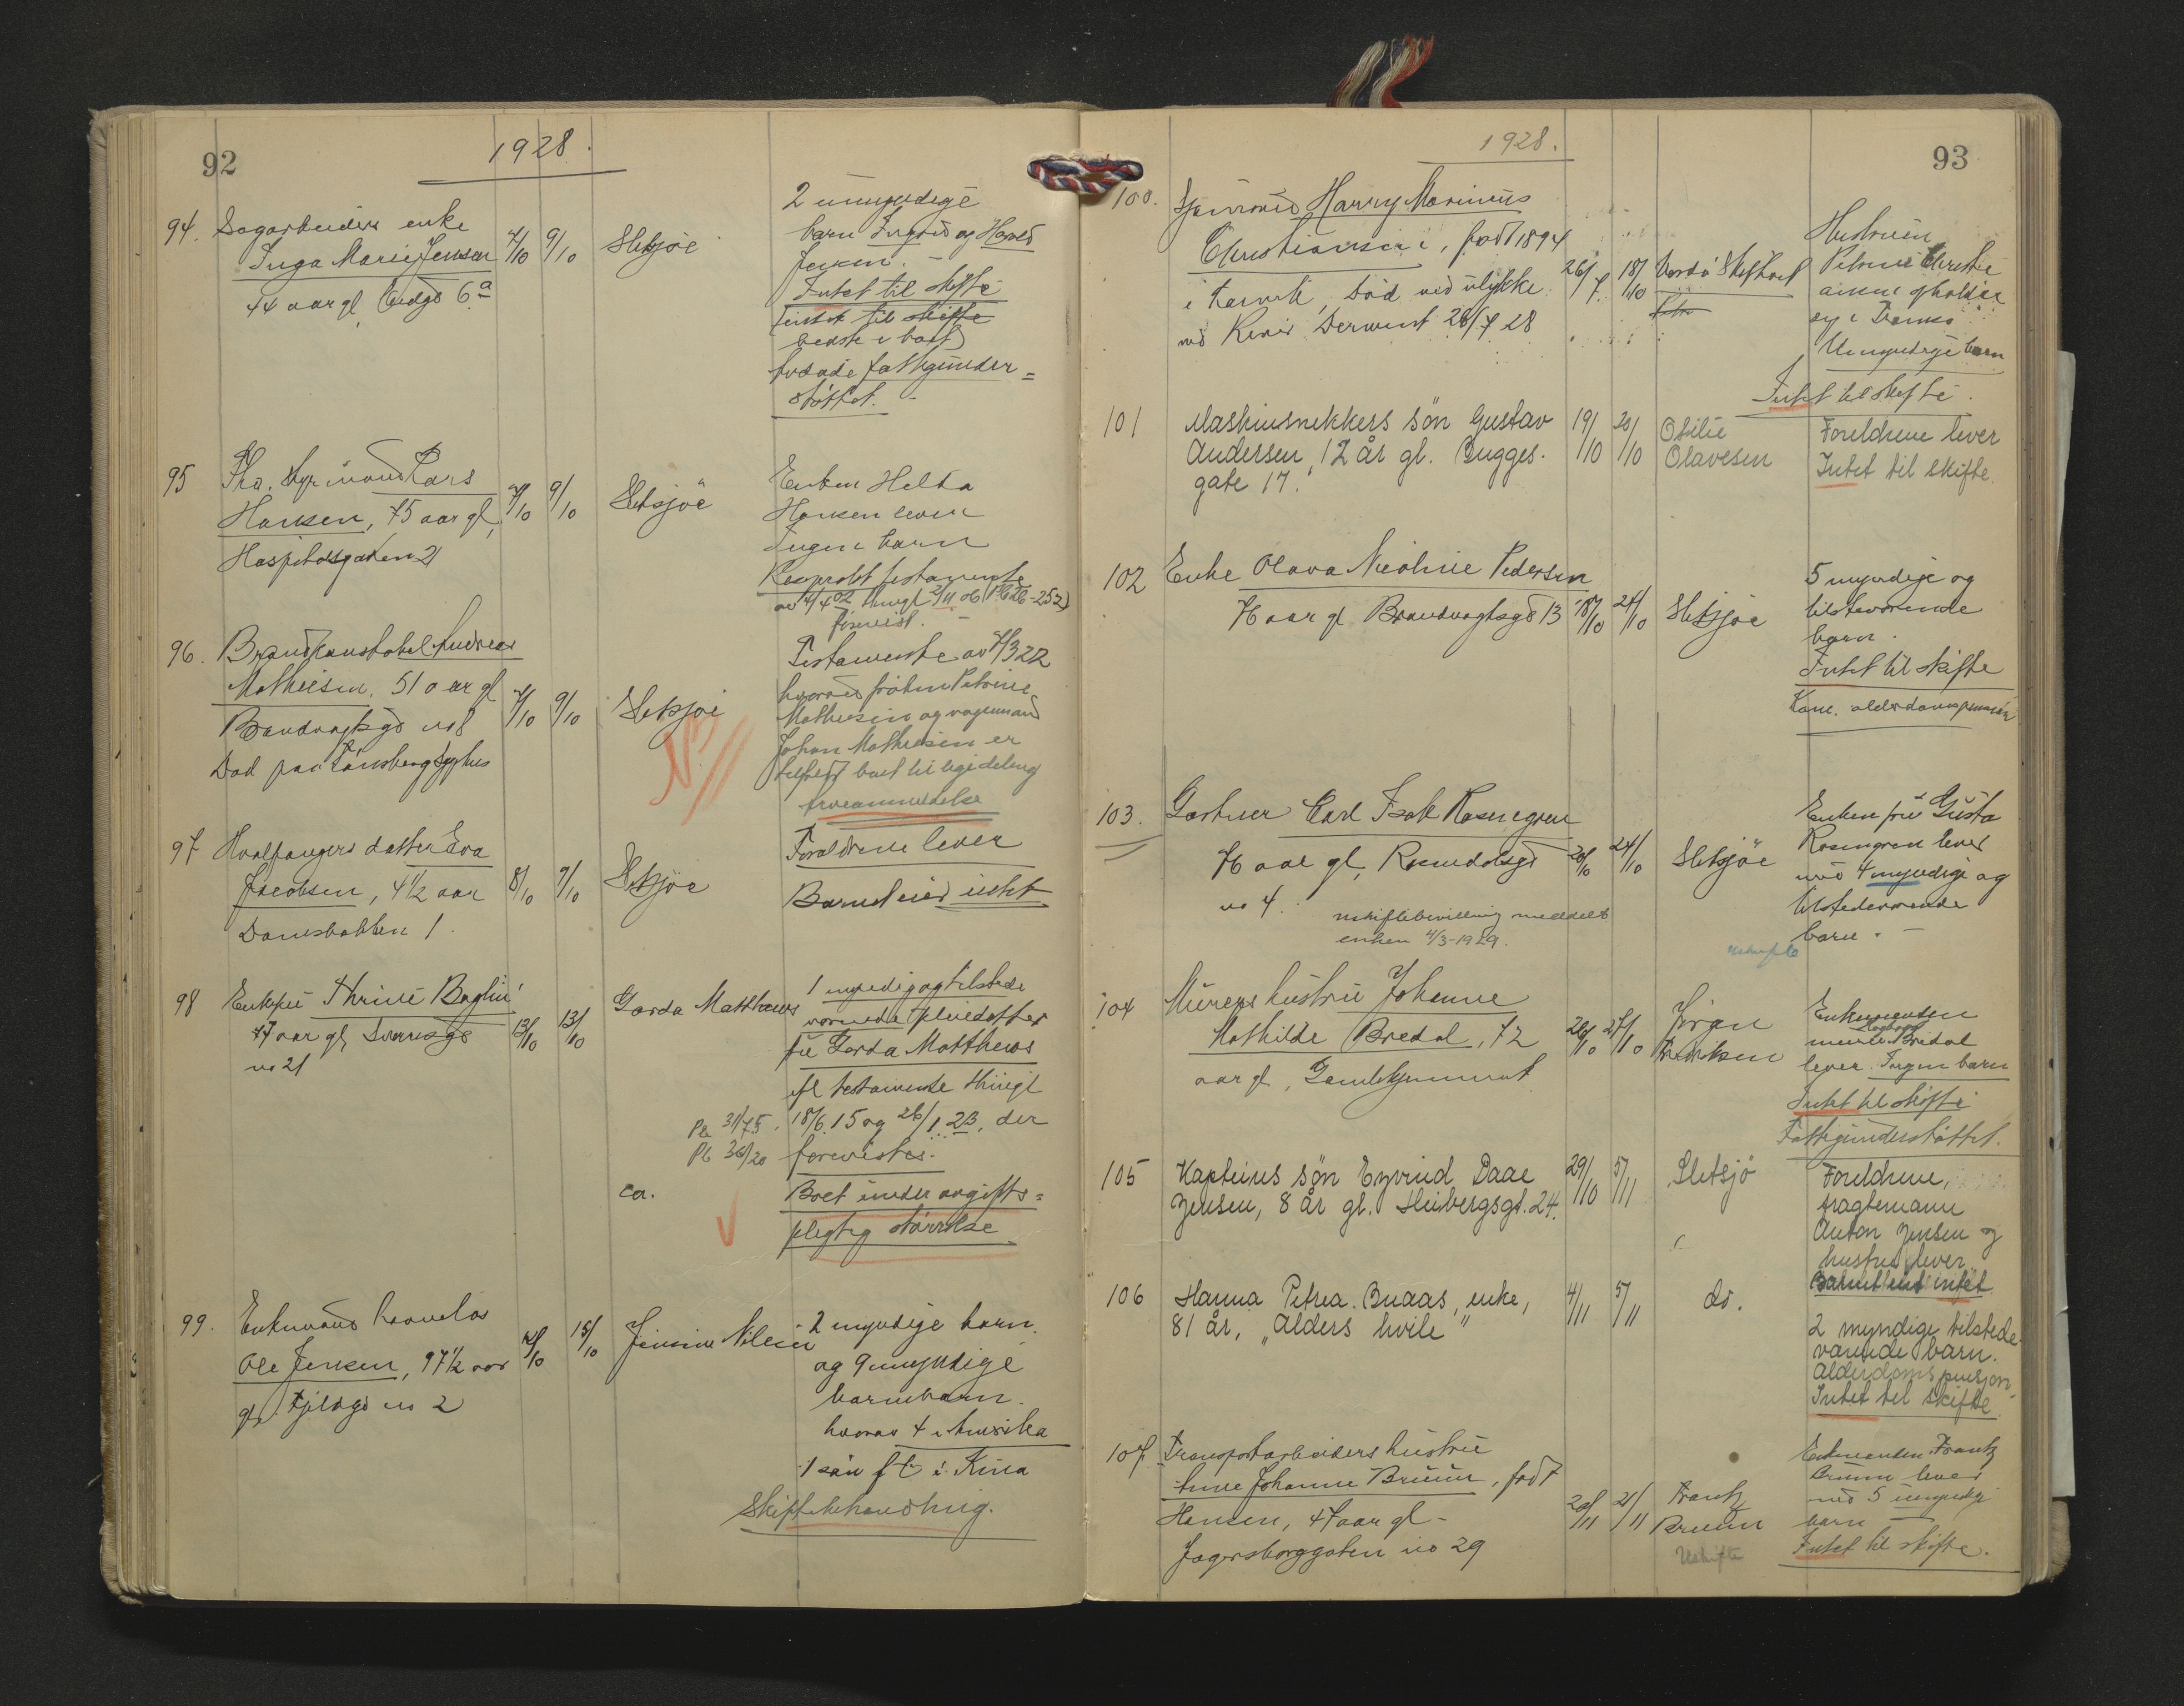 92
1928.
94. Sagarbeiders enke
Inga Marie Jensen
44 aar gl
6a
7/10 9/10
Sletsjöe
2 umyndige
barn Ingrid og
Jensen. –
Intet til skifte
Intet til skifte
fattigunder=
støttet. –
95
Lars
Hansen, 75 aar gl,
Hospitalsgaden 21
7/10 9/10
Sletsjöe
Enken Helta
Hansen lever
Ingen barn
testamente
forevist. –
96. Brandkonstabel Andreas
Mathiesen, 51 aar gl
no 8
Död paa Tönsberg Sygehus
7/10 9/10
Sletsjöe
NB
Testamente av
hvorved frøken Petrine
Mathiesen og vognmand
Johan Mathiesen er
boet til lige deling
97 Hvalfangers datter Eva
Jacobsen, 4 1/2 aar
1.
8/10 9/10
Sletsjöe
Foreldrene lever
Barnet eied intet
98 Enkefru Thrine
77 aar gl,
no 21
13/10 13/10
Gerda Matthews
1 myndig og tilstede
værende pleiedatter
fru Gerda Matthews
ifl testamente thingl
Pb 31/75. 18/6 15 og 26/1 23, der
Pb 36/20 forevistes.
ca.
Boet under avgifts=
pligtig størrelse
99. Enkemand
Ole Jensen, 97 1/2 aar
gl. no 2
15/10
Nilsen
2 myndige barn
og 9 myndige
barnebarn.
hvorav 4 i Amerika
1 sön f t i Kina
Skiftebehandling.
93
1928.
100. Sjömand Harry Marinius
Christiansen, født 1894
död ved ulykke
ved Derwent 26/7 28
26/7. 18/10
Vardö
Hustruen
Petrine Christi
ansen opholder
sig i
Umyndige barn
Intet til skifte.
101 Maskinsnekkers sön Gustav
Andersen, 12 år gl. Bugges-
gate 17.
19/10 20/10
Otilie
Olavesen
Foreldrene lever
Intet til skifte.
102 Enke Olava Nicoline Pedersen
76 aar gl Brandvagtsgd 13
18/10 24/10
Sletsjöe
5 myndige og
tilstedeværende
barn.
Intet til skifte
Kom. alderdomspension
103. Gartner Carl Isak Rosengren
76 aar gl, Rosendalsgd
no 4.
uskiftebevilling meddelt
enken 4/3-1929.
20/10 24/10
Sletsjöe
Enken fru Gusta
Rosengren lever
med 4 myndige og
tilstedeværende
barn. –
104 Murers hustru Johanne
Mathilde Bredal, 72
aar gl,
26/10 27/10
Jörgen
Enkemanden
Bredal
lever. Ingen barn
Intet til skifte
Fattigunderstøttet.
105 Kapteins sön Eyvind Daae
Jensen, 8 år gl. Heibergsgt. 24.
29/10 5/11
Sletsjö
Foreldrene,
fragtemann
Anton Jensen og
hustru lever.
Barnet eied intet
106 Hanna Petrea Buaas, enke,
81 år, „Alders hvile"
4/11 5/11
do.
2 myndige tilstede-
værende barn.
Alderdomspensjon.
Intet til skifte
107. Transportarbeiders hustru
Anne Johanne Bruun, født
Hansen, 47 aar gl –
Jegersborggaten no 29
20/11 21/11
Frantz
Bruun
Uskifte
Enkemanden Frantz
Bruun lever
med 5 umyndige
barn –
Intet til skifte.